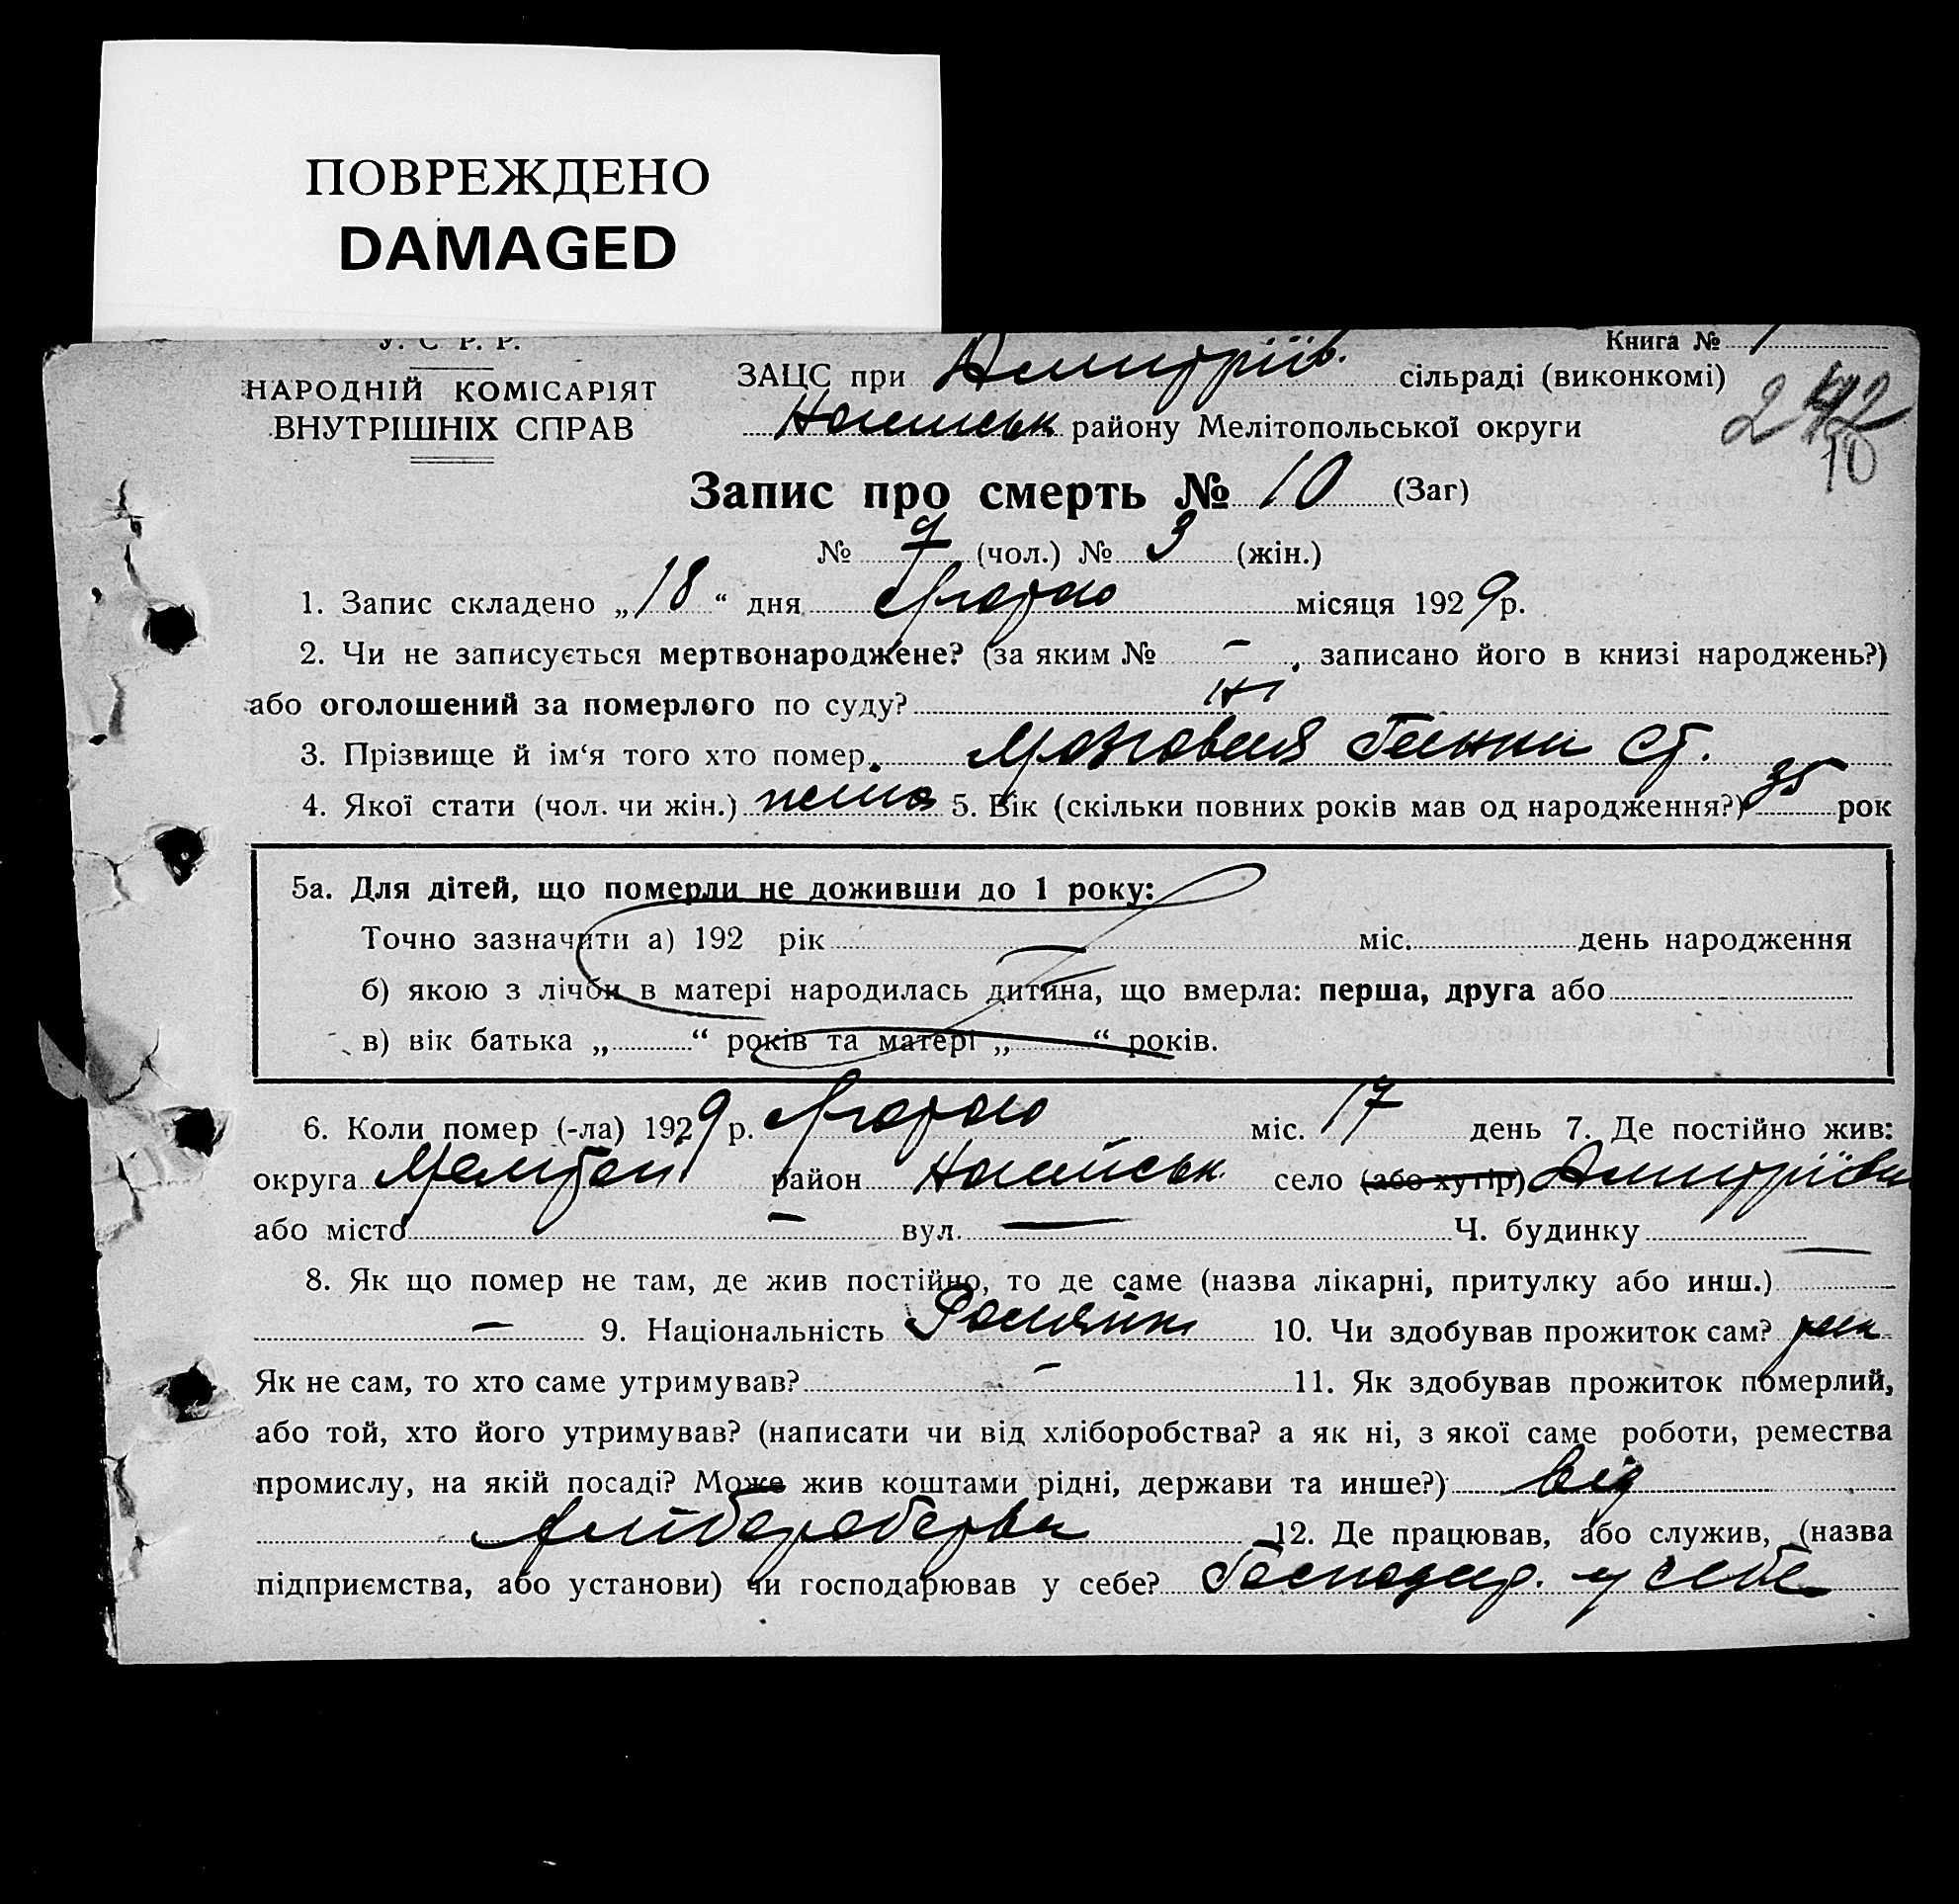 ПОВРЕЖДЕНО
DAMAGED
У. С Р. Р.
Книга № 1
НАРОДНІЙ КОМІСАРІЯТ
ВНУТРІШНІХ СПРАВ
ЗАЦС при Дмитріїв. сільраді (виконкомі)
Ногайськ району Мелітопольської округи
242
10
Запис про смерть № 10 (Заг)
№ 7 (чол.) № 3 (жін.)
1. Запис складено „18“ дня лютого місяця 1929р.
2. Чи не записується мертвонароджене? (за яким № – , записано його в книзі народжень?)
або оголошений за померлого по суду? ні
3. Прізвище й ім‘я того хто помер. Мозговая Ганна Ст.
4. Якої стати (чол. чи жін.) 5. Вік (скільки повних років мав од народження?) 35 рок
5а. Для дітей, що померли не доживши до 1 року:
Точно зазначити а) 192 рік міс. день народження
б) якою з лічби в матері народилась дитина, що вмерла: перша, друга або
в) вік батька „ “ років та матері „ “ років.
6. Коли помер (-ла) 1929 р. лютого міс. 17 день 7. Де постійно жив:
округа Меліт район Ногайськ село (або хутір) Дмитріївк
або місто – вул. — Ч. будинку —
8. Як що помер не там, де жив постійно, то де саме (назва лікарні, притулку або инш.)
– 9. Національність 10. Чи здобував прожиток сам?
Як не сам, то хто саме утримував? – 11. Як здобував прожиток померлий,
або той, хто його утримував? (написати чи від хліборобства? а як ні, з якої саме роботи, ремества
промислу, на якій посаді? Може жив коштами рідні, держави та инше?) від
хліборобства 12. Де працював, або служив, (назва
підприємства, або установи) чи господарював у себе? Господар. у себе